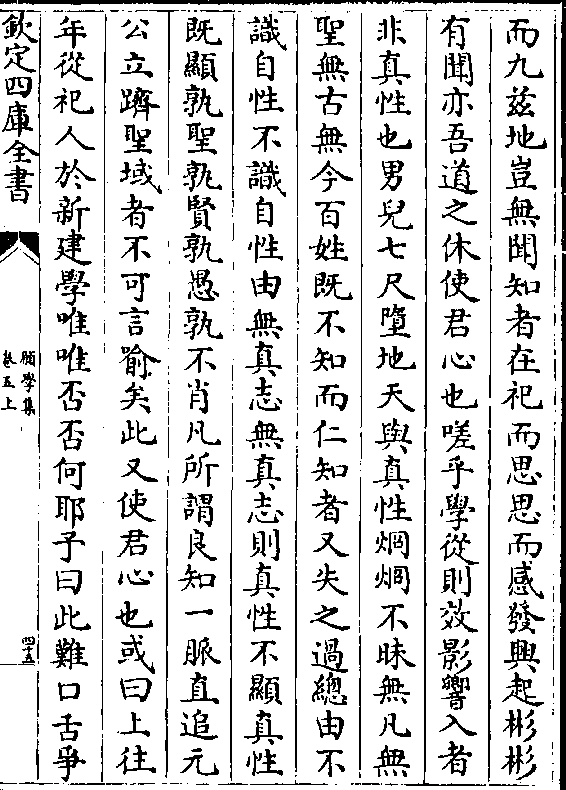 而九兹地豈無聞知者在祀而思思而感發興起彬彬
有聞亦吾道之休使君心也嗟乎學從則效影響入者
非真性也男兒七尺墮地天與真性烱烱不昧無凡無
聖無古無今百姓既不知而仁知者又失之過總由不
識自性不識自性由無真志無真志則真性不顯真性
既顯孰聖孰賢孰愚孰不肖凡所謂良知一脈直追元
公立躋聖域者不可言喻矣此又使君心也或曰上往
年從祀人於新建學唯唯否否何耶予曰此難口舌爭
欽定四庫全書
願學集
卷五上
四十五